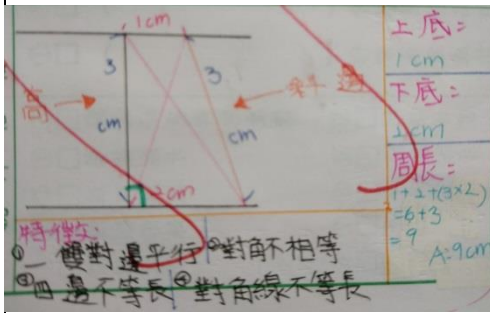 1cm
3
3
高
斜邊
cm
cm
2cm
上底=
1cm
下底=
2cm
周長=
1+2+(3×2)
=6+3
=9
A:9cm
特徵:
①一雙對邊平行 ②對角不相等
③四邊不等長 ④對角線不等長